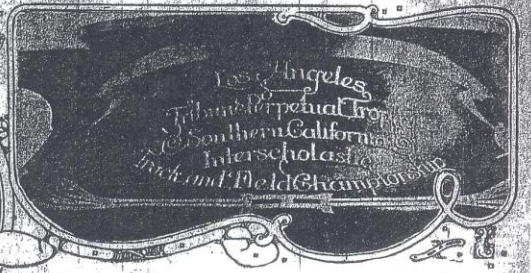 Los Angeles
Tribune Perpetual Trop
Southern California
Interscholastic
Track and Field Championship